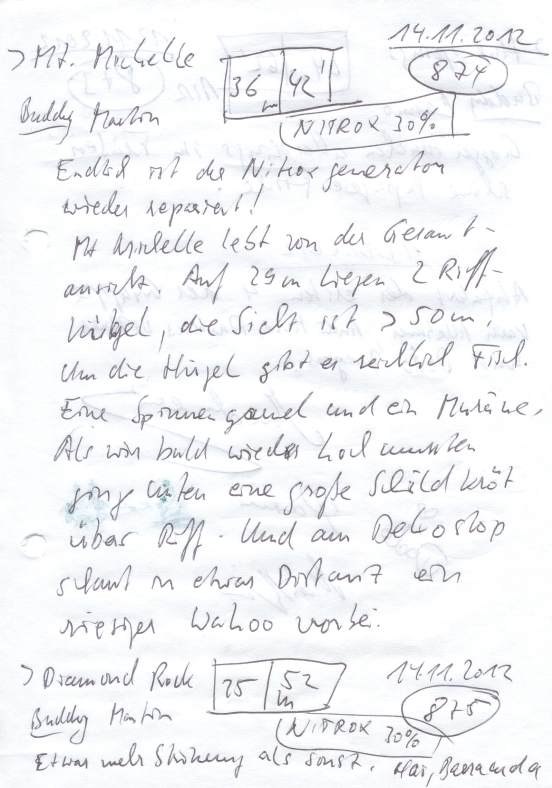 14.11.2012
> Mt. Michelle 36 m 42' 874
Buddy Martin NITROX 30%
Endlich ist der Nitroxgenerator
wieder repariert!
Mt Michelle lebt von der Gesamt-
ansicht. Auf 29m liegen 2 Riff-
hügel, die Sicht ist > 50m,
um die Hügel gibt es reichlich Fisch.
Eine Spinnengarnel und ein Muräne.
Als wir bald wieder hoch mussten
ging unten eine große Schildkröt
über Riff. Und am Dekostop
schaut in etwas Distanz ein
riesiger Wahoo vorbei.
> Diamond Rock 25 m 52 14.11.2012
Buddy Martin NITROX 30% 875
Etwas mehr Strömung als sonst. Hai, Barracuda